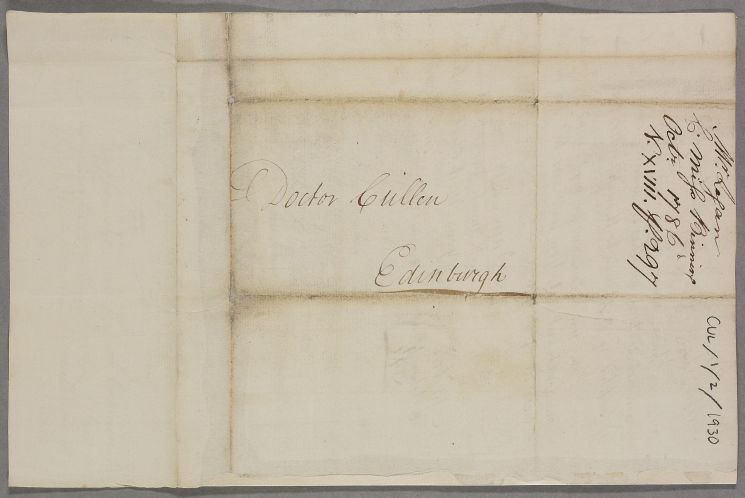 Doctor Cullen
Edinburgh
Mr. Logan
C. Miss
Octr. 1786
V. XVIII. P. 297
CUL/1/2/1930